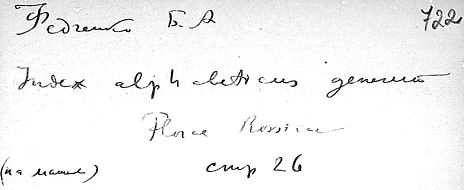 Федченко Б. А 722
Index alphabeticus generum
Florae Rossicae
(на машин)
стр 26